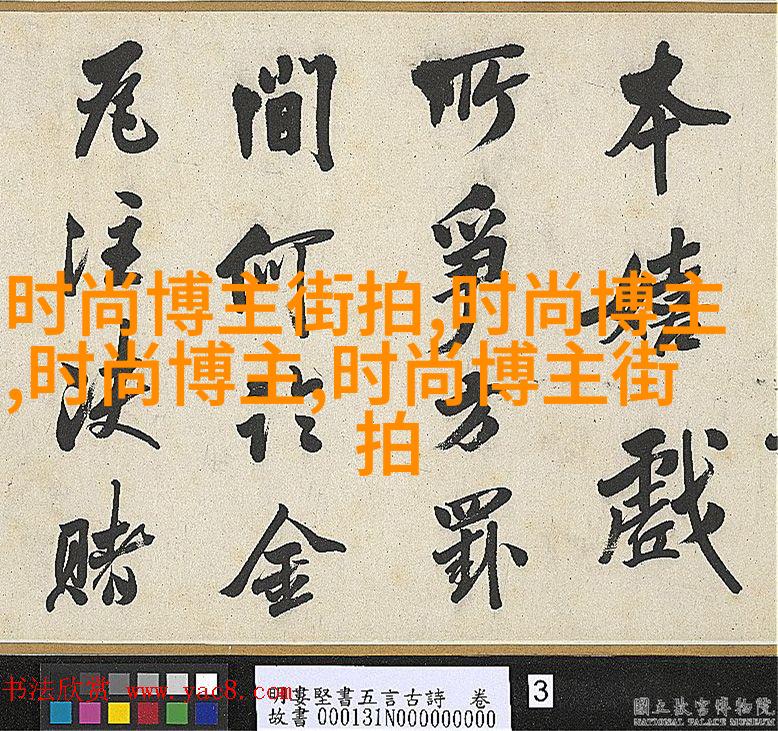 本嬉戲
所爭方罫
間何金
瓦注決賭
时尚博主街拍,时尚博主
,时尚博主,时尚博主街
拍
书法欣赏 www.yac8.com
明婁堅書五言古詩 卷
故書000131N000000000
3
國立故宮博物院
NATIONAL PALACE MUSEUM